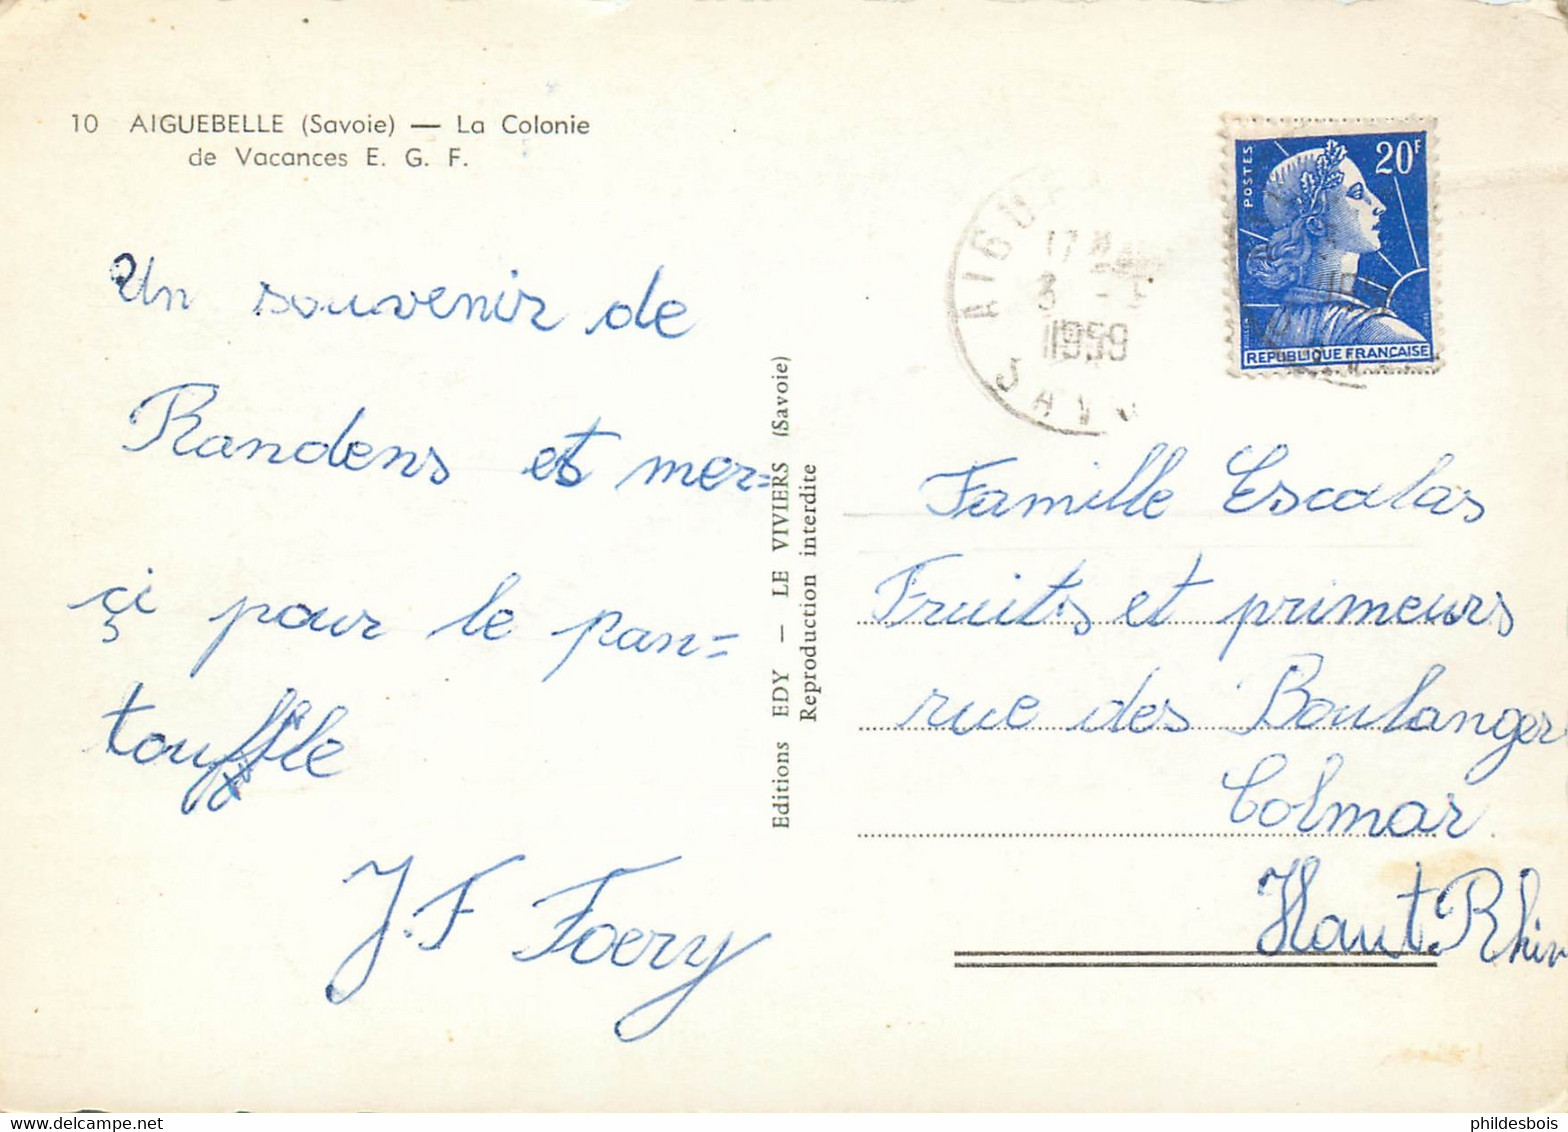 10 AIGUEBELLE (Savoie) — La Colonie
de Vacances E. G. F.
Un souvenir de
Randens et mer=
çi pour le pan=
touffle
J.F Foery
Editions EDY — LE VIVIERS (Savoie)
Reproduction interdite
17
3
1959
POSTES
20F
REPUBLIQUE FRANÇAISE
Famille Escalas
Fruits et primeurs
rue des Boulanger
Colmar.
Haut.Rhin
delcampe.net
phildesbois